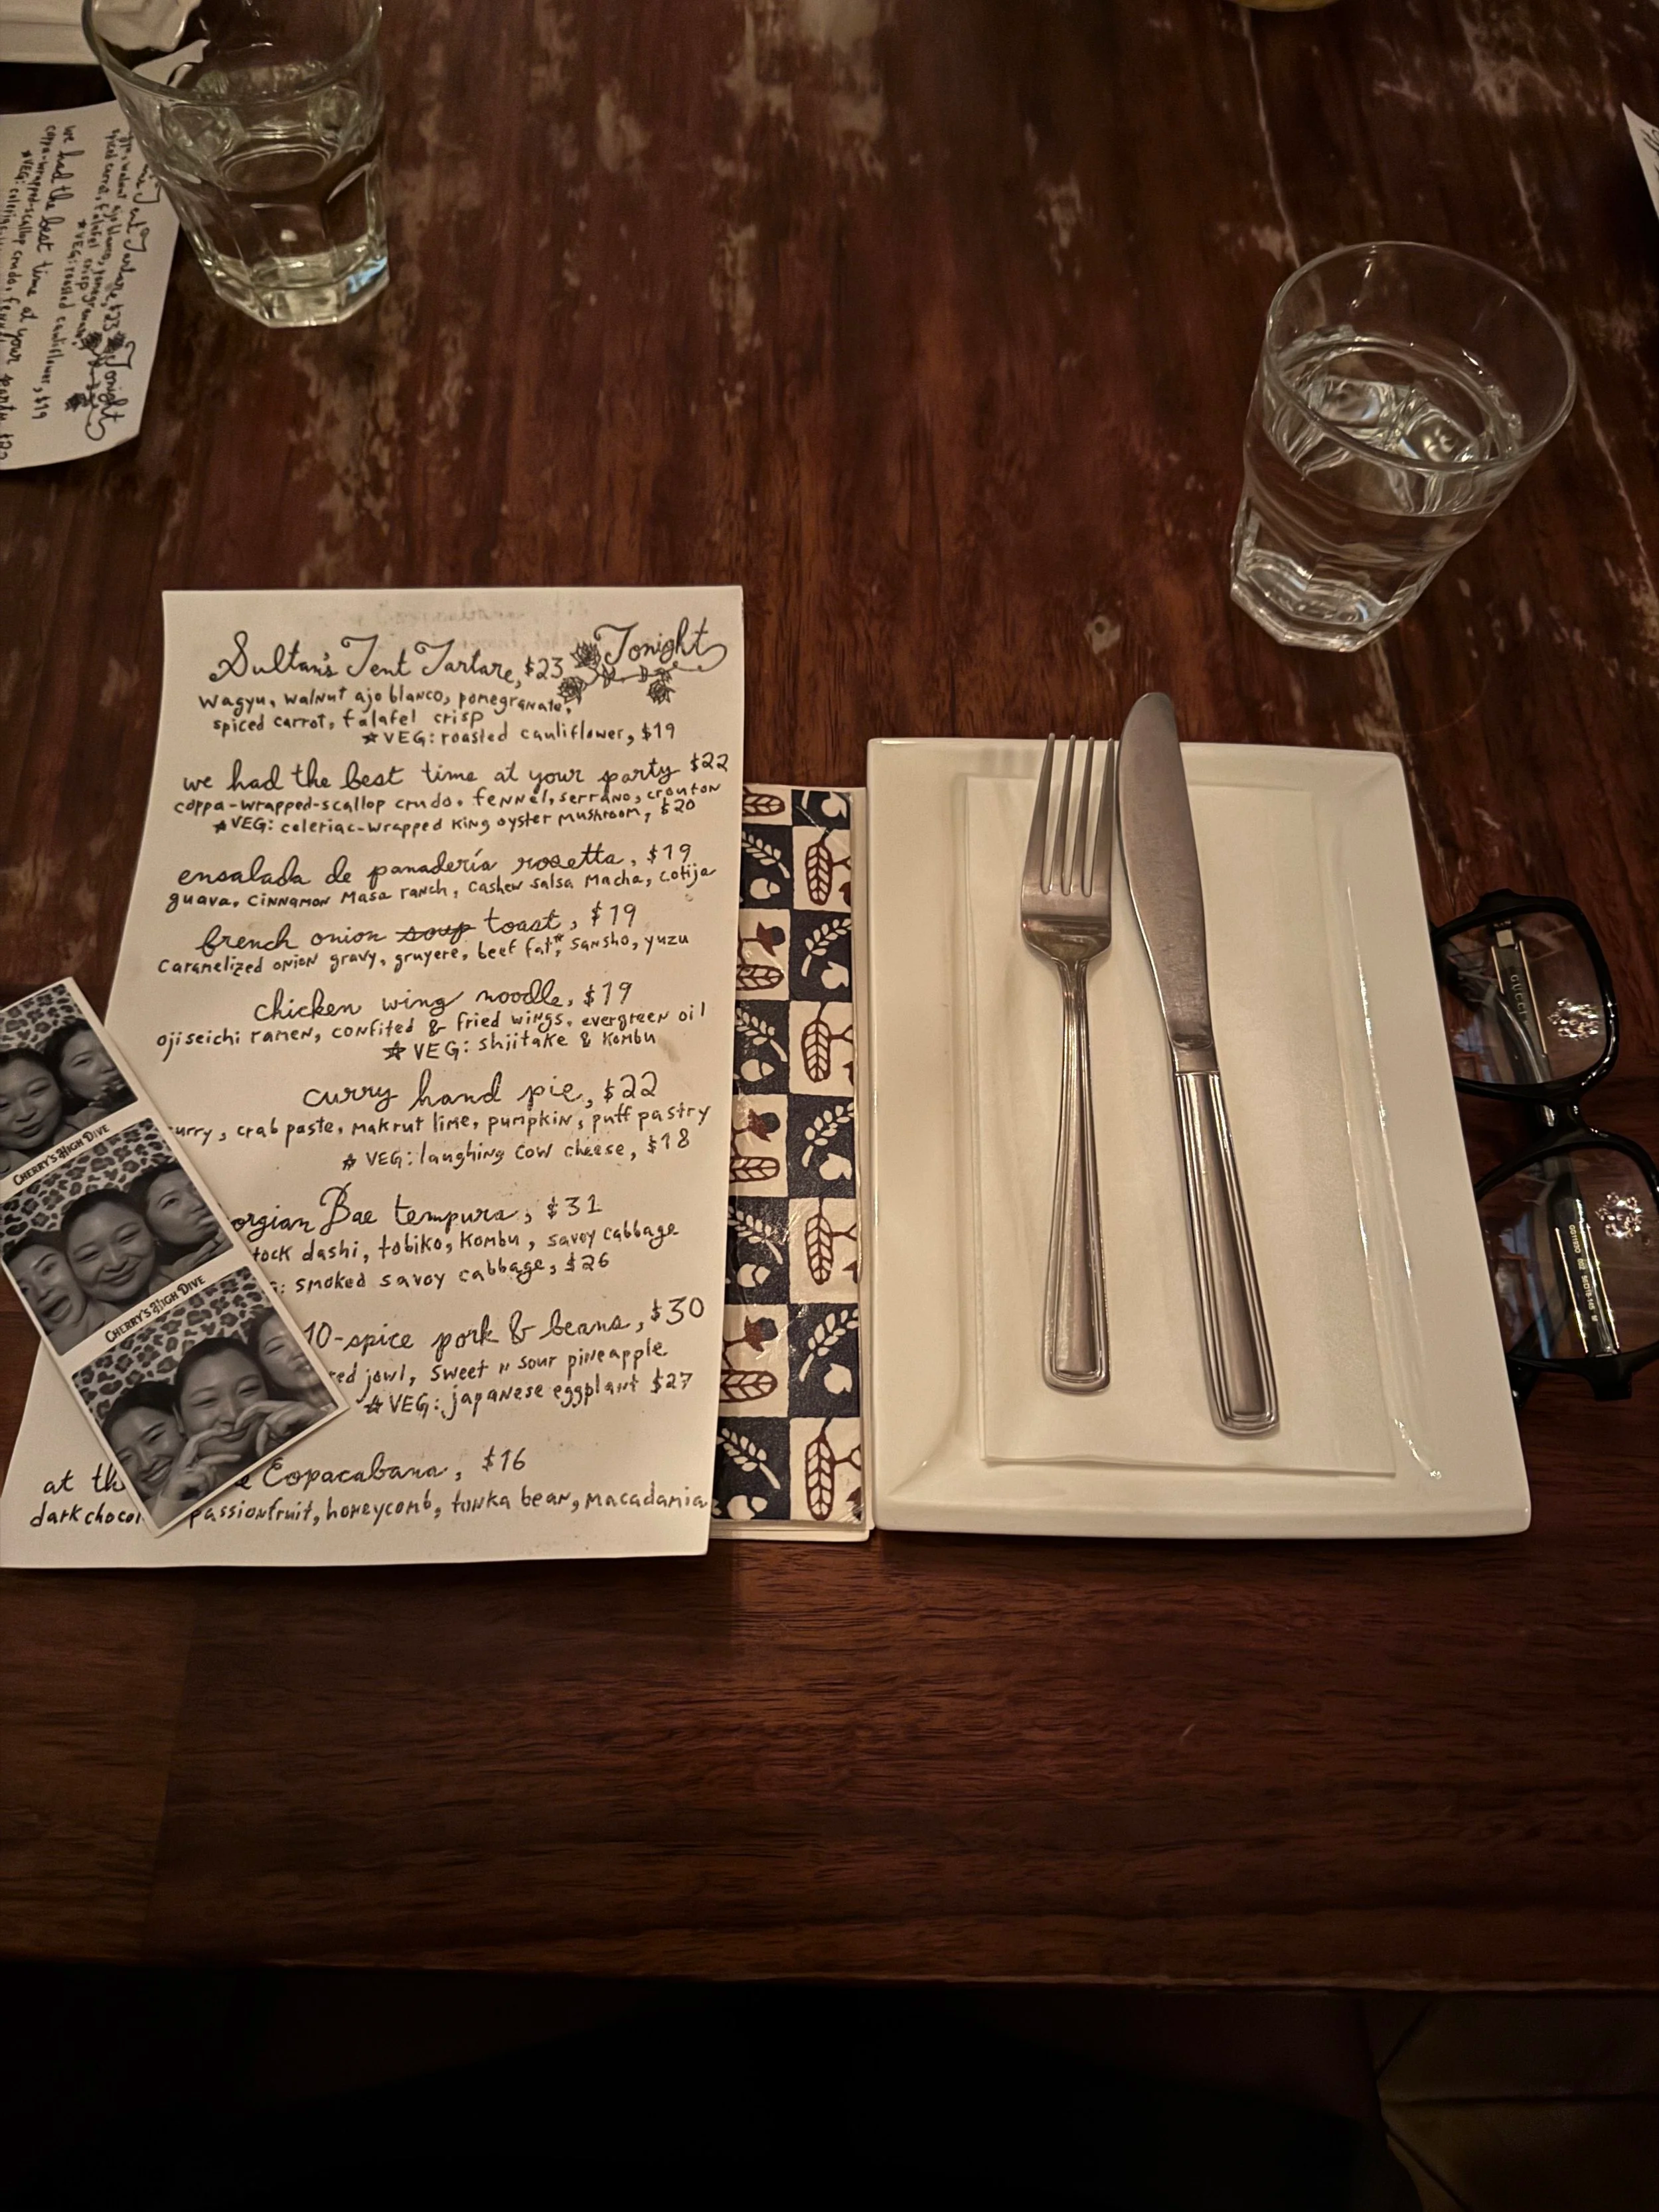 Sultan's Tent Tartare, $23
Tonight
wagyu, walnut ajo blanco, pomegranate,
spiced carrot, falafel crisp
☆VEG: roasted cauliflower, $19
we had the best time at your party $22
coppa-wrapped-scallop crudo, fennel, serrano, crouton
☆VEG: celeriac-wrapped king oyster mushroom, $20
ensalada de panadería rosetta, $19
guava, cinnamon masa ranch, cashew salsa macha, cotija
french onion soup toast, $19
caramelized onion gravy, gruyere, beef fat*, sansho, yuzu
chicken wing noodle, $19
ojiseichi ramen, confited & fried wings, evergreen oil
☆ VEG: shjitake & kombu
curry hand pie, $22
urry, crab paste, makrut lime, pumpkin, puff pastry
☆ VEG: laughing cow cheese, $18
orgian Bae tempura, $31
tock dashi, tobiko, kombu, savoy cabbage
: smoked savoy cabbage, $26
10-spice pork & beans, $30
red jowl, sweet n sour pineapple
☆ VEG: japanese eggplant $27
at th Copacabana, $16
dark chocol passionfruit, honeycomb, tonka bean, macadamia
CHERRY'S HIGH DIVE
CHERRY'S HIGH DIVE
Tartare, $23
Tonight
spiced carrot, falafel crisp
☆VEG: roasted cauliflower, $19
we had the best time at your party $22
coppa-wrapped-scallop crudo, fennel
☆VEG: celeriac
GUCCI